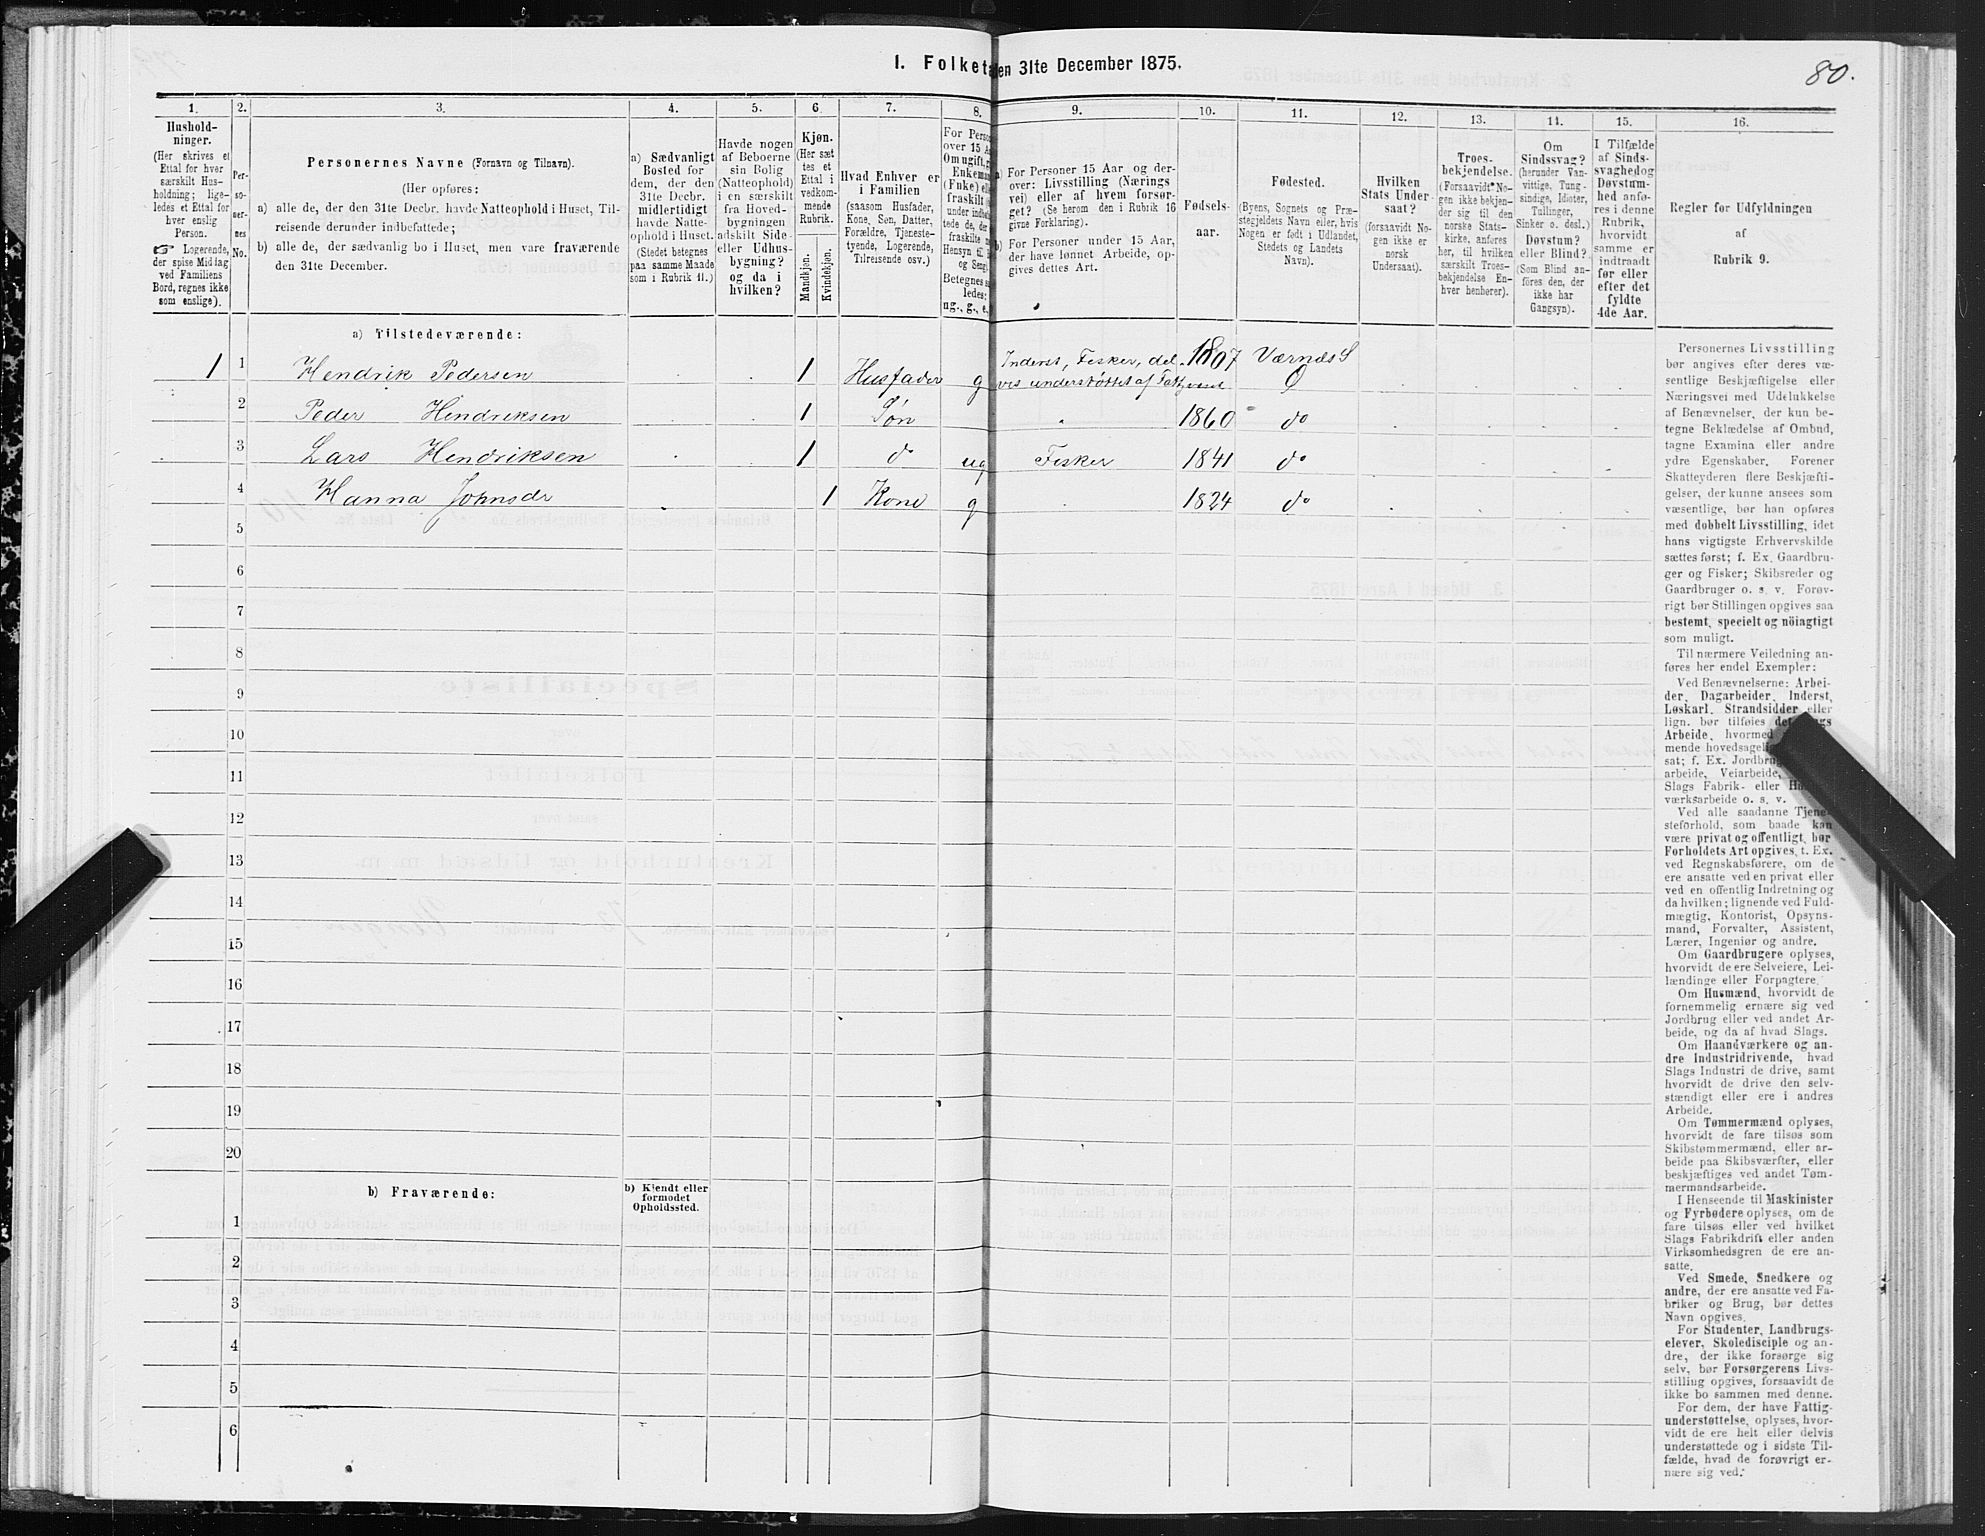 I. Folketa en 31te December 1875.
80.
1.
Hushold-
ninger.
(Her skrives et
Ettal for hver
særskilt Hus-
holdning; lige-
ledes et Ettal for
hver enslig
Person.
☞ Logerende,
der spise Middag
ved Familiens
Bord, regnes ikke
som enslige).
2.
Per-
so-
ner-
nes
No.
3.
Personernes Navne (Fornavn og Tilnavn).
(Her opføres:
a) alle de, der den 31te Decbr. havde Natteophold i Huset, Til-
reisende derunder indbefattede;
b) alle de, der sædvanlig bo i Huset, men vare fraværende
den 31te December.
4.
a) Sædvanligt
Bosted for
dem, der den
31te Decbr.
midlertidigt
havde Natte-
ophold i Huset.
(Stedet betegnes
paa samme Maade
som i Rubrik 11.)
5.
Havde nogen
af Beboerne
sin Bolig
(Natteophold)
i en særskilt
fra Hoved-
bygningen
adskilt Side-
eller Udhus-
bygning?
og da i
hvilken?
6.
Kjøn.
(Her sæt
tes et
Ettal i
vedkom-
mende
Rubrik.
Mandkjøn.
Kvindekjøn.
7.
Hvad Enhver er
i Familien
(saasom Husfader,
Kone, Søn, Datter,
Forældre, Tjeneste-
tyende, Logerende,
Tilreisende osv.)
8.
For Perso
over 15 Aa
Om ugift, g
Enkeman
(Fuke) ell
fraskilt
under indbe
tede de,
fraskilte
Hensyn til
og Seng.
Betegnes s
ledes:
ug., g., e.,
9.
a) For Personer 15 Aar og der-
over: Livsstilling (Nærings
vei) eller af hvem forsør-
get? (Se herom den i Rubrik 16
givne Forklaring).
b) For Personer under 15 Aar,
der have lønnet Arbeide, op-
gives dettes Art.
10.
Fødsels-
aar.
11.
Fødested.
(Byens, Sognets og Præ-
stegjeldets Navn eller, hvis
Nogen er født i Udlandet,
Stedets og Landets
Navn).
12.
Hvilken
Stats Under-
saat?
(forsaavidt No-
gen ikke er
norsk
Undersaat).
13.
Troes-
bekjendelse.
(Forsaavidt No-
gen ikke bekjen-
der sig til den
norske Stats-
kirke, anføres
her, til hvilken
særskilt Troes-
bekjendelse En-
hver henhører).
14.
Om
Sindssvag?
(herunder Van-
vittige, Tung-
sindige, Idioter,
Tullinger,
Sinker o. desl.)
Døvstum?
eller Blind?
(Som Blind an-
føres den, der
ikke har
Gangsyn).
15.
I Tilfælde
af Sinds-
svaghedog
Døvstum-
hed anfø-
res i denne
Rubrik,
hvorvidt
samme er
indtraadt
før eller
efter det
fyldte
4de Aar.
16.
Regler for Udfyldningen
af
Rubrik 9.
a) Tilstedeværende:
1 1 Hendrik Pedersen 1 Husfader g Inderst, Fisker, del- 1807 Værnæs S
vis understøttet af Fattigvæset Ø
2 Peder Hendriksen 1 Søn 1860 do
3 Lars Hendriksen 1 do ug Fisker 1841 do
4 Hanna Johnsdr 1 Kone g 1824 do
5
6
7
8
9
10
11
12
13
14
15
16
17
18
19
20
b) Fraværende:
b) Kjendt eller
formodet
Opholdssted.
1
2
3
4
5
6
Personernes Livsstilling
bør angives efter deres væ-
sentlige Beskjæftigelse eller
Næringsvei med Udelukkelse
af Benævnelser, der kun be-
tegne Beklædelse af Ombud,
tagne Examina eller andre
ydre Egenskaber. Forener
Skatteyderen flere Beskjæfti-
gelser, der kunne ansees som
væsentlige, bør han opføres
med dobbelt Livsstilling, idet
hans vigtigste Erhvervskilde
sættes først; f. Ex. Gaardbru-
ger og Fisker; Skibsreder og
Gaardbruger o. s. v. Forøv-
rigt bør Stillingen opgives saa
bestemt, specielt og nöiagtigt
som muligt.
Til nærmere Veiledning an-
føres her endel Exempler:
Ved Benævnelserne: Arbei-
der, Dagarbeider, Inderst,
Løskarl, Strandsidder eller
lign. bør tilføies det
Arbeide, hvormed
mende hovedsageli
sat; f. Ex. Jordbru
arbeide, Veiarbeide,
Slags Fabrik- eller Ha
værksarbeide o. s. v.
Ved alle saadanne Tjene
steforhold, som baade kan
være privat og offentligt, bør
Forholdets Art opgives, t. Ex.
ved Regnskabsførere, om de
ere ansatte ved en privat eller
ved en offentlig Indretning og
da hvilken; lignende ved Fuld-
mægtig, Kontorist, Opsyns-
mand, Forvalter, Assistent,
Lærer, Ingeniør og andre.
Om Gaardbrugere oplyses,
hvorvidt de ere Selveiere, Lei-
lændinge eller Forpagtere.
Om Husmænd, hvorvidt de
fornemmelig ernære sig ved
Jordbrug eller ved andet Ar-
beide, og da af hvad Slags.
Om Haandværkere og an-
dre Industridrivende, hvad
Slags Industri de drive, samt
hvorvidt de drive den selv-
stændigt eller ere i andres
Arbeide.
Om Tømmermænd oplyses,
hvorvidt de fare tilsøs som
Skibstømmermænd, eller ar-
beide paa Skibsværfter, eller
beskjæftiges ved andet Tøm-
mermandsarbeide.
I Henseende til Maskinister
og Fyrbødere oplyses, om de
fare tilsøs eller ved hvilket
Slags Fabrikdrift eller anden
Virksomhedsgren de ere an-
satte.
Ved Smede, Snedkere og
andre, der ere ansatte ved Fa-
briker og Brug, bør dettes
Navn opgives.
For Studenter, Landbrugs-
elever, Skoledisciple og an-
dre, der ikke forsørge sig
selv, bør Forsørgerens Livs-
stilling opgives, forsaavidt de
ikke bo sammen med denne.
For dem, der have Fattig-
understøttelse, oplyses, hvor-
vidt de ere helt eller delvis
understøttede og i sidste Til-
fælde, hvad de forøvrigt er-
nære sig ved.